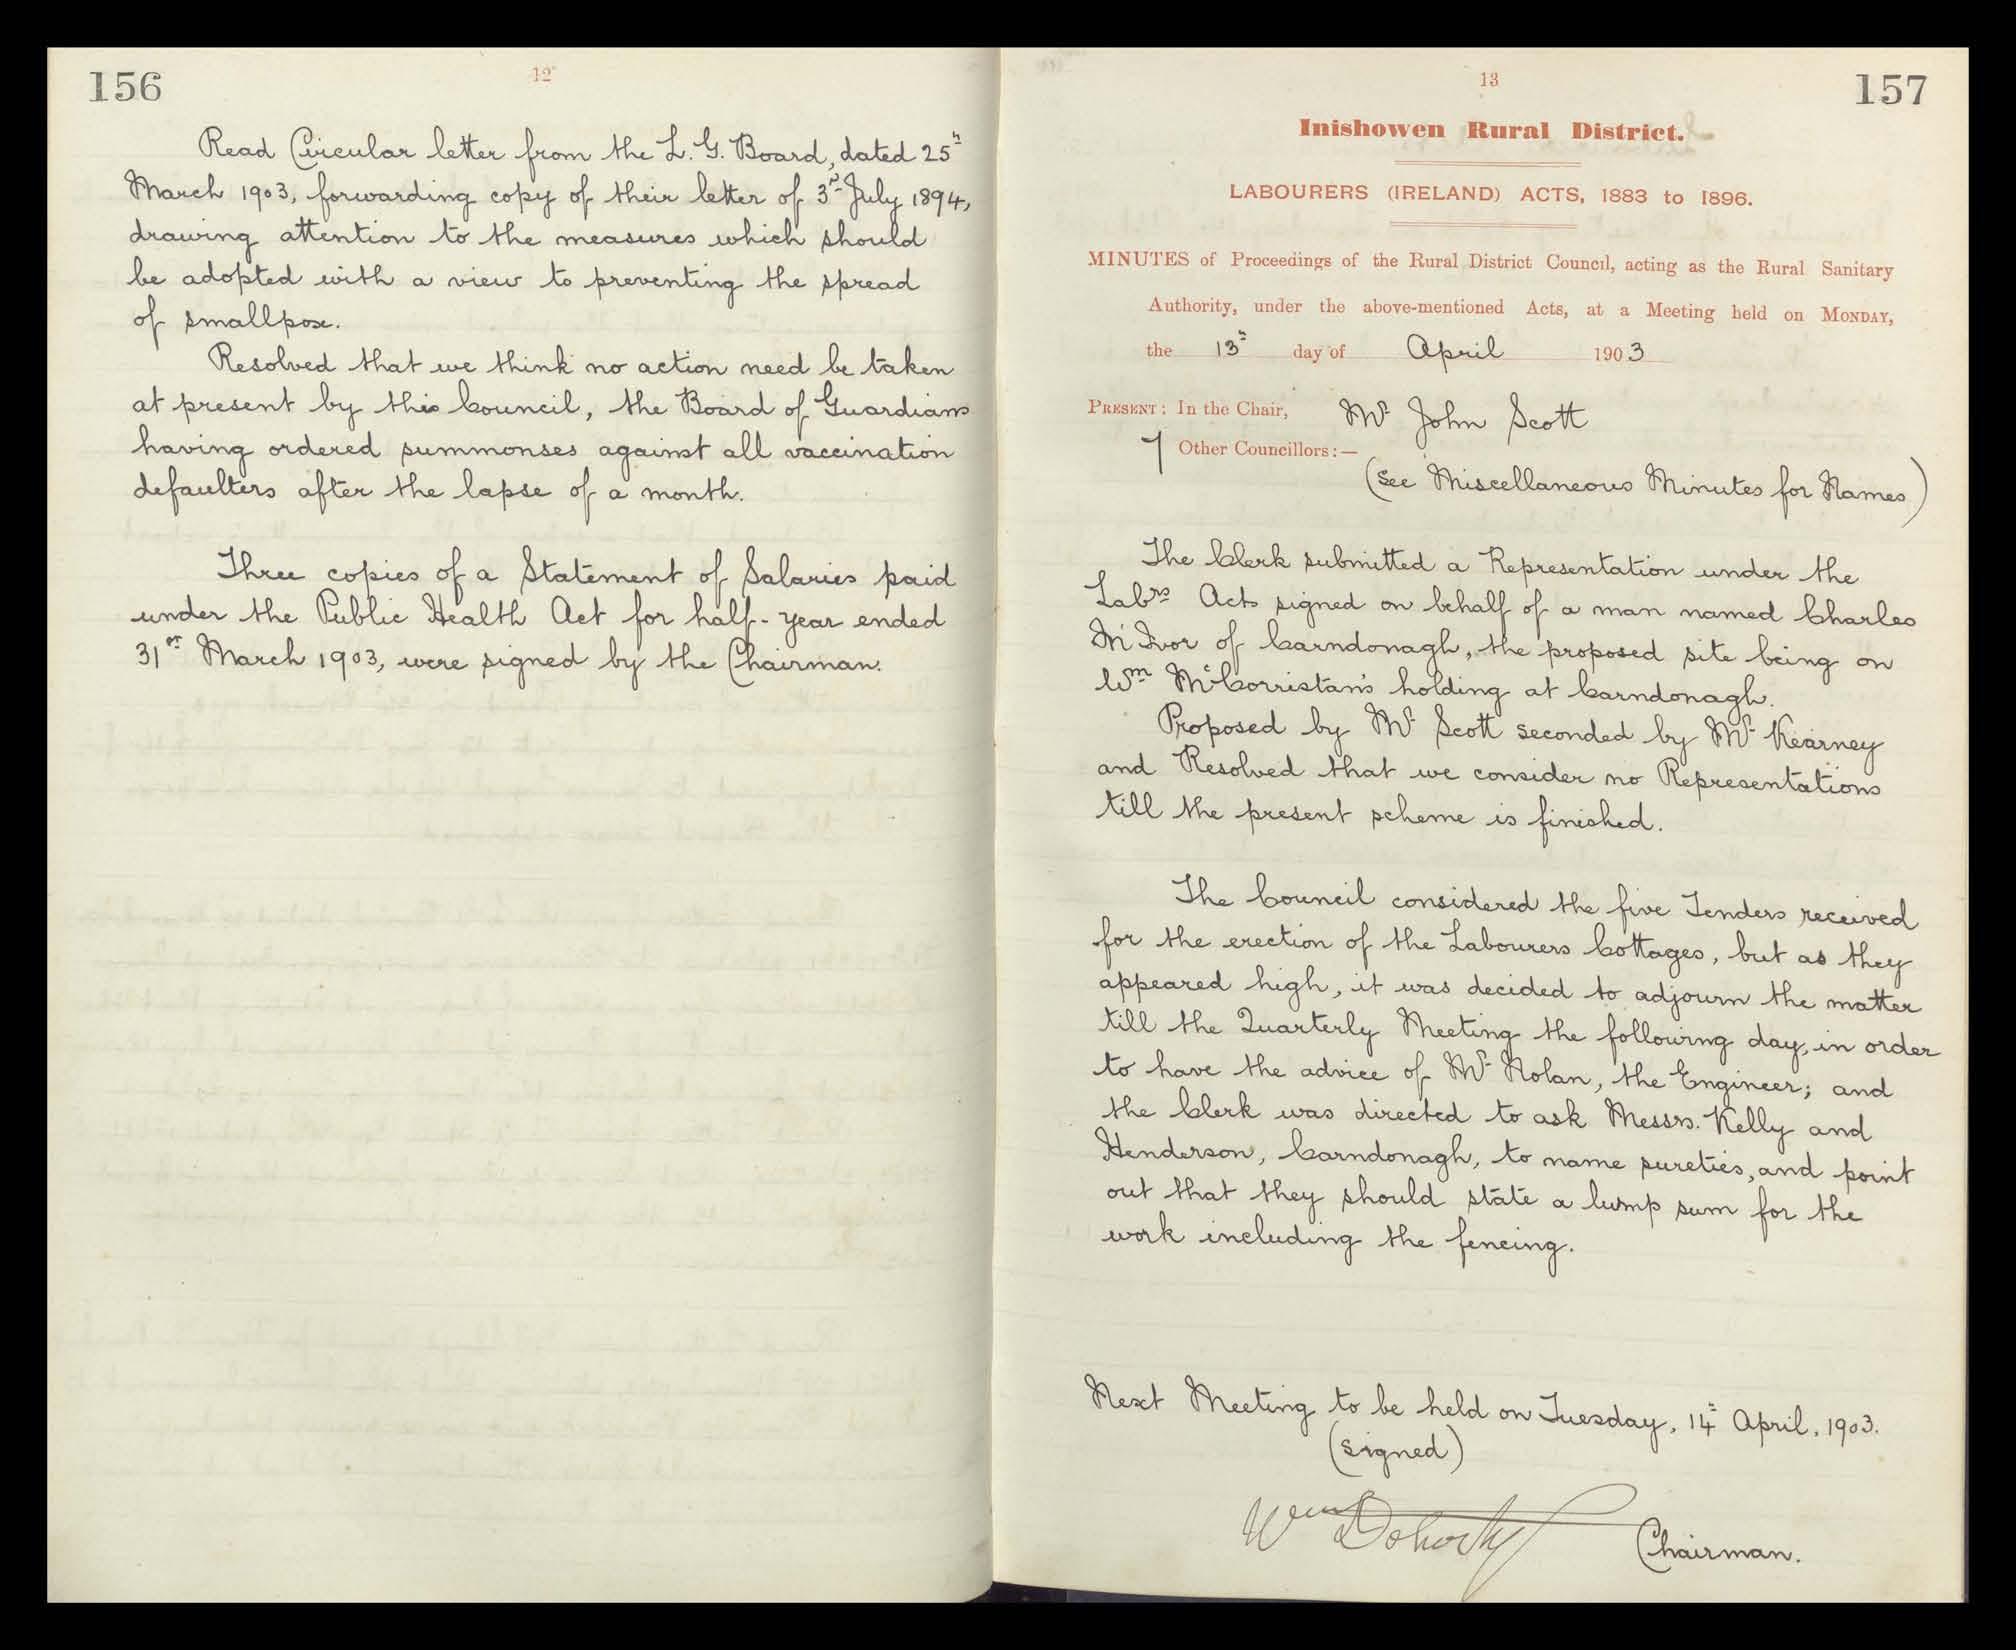 156
12
Read Circular letter from the L. G. Board, dated 25th
March 1903, forwarding copy of their letter of 3rd July 1894,
drawing attention to the measures which should
be adopted with a view to preventing the spread
of smallpox.
Resolved that we think no action need be taken
at present by this Council, the Board of Guardians
having ordered summonses against all vaccination
defaulters after the lapse of a month.
Three copies of a Statement of Salaries paid
under the Public Health Act for half-year ended
31st March 1903, were signed by the Chairman.
13
157
Inishowen Rural District.
LABOURERS (IRELAND) ACTS, 1883 to 1896.
MINUTES of Proceedings of the Rural District Council, acting as the Rural Sanitary
Authority, under the above-mentioned Acts, at a Meeting held on MONDAY,
the 13th day of April 1903
PRESENT: In the Chair, Mr John Scott
7 Other Councillors:—
(See Miscellaneous Minutes for Names)
The Clerk submitted a Representation under the
Labrs Acts signed on behalf of a man named Charles
M'Ivor of Carndonagh, the proposed site being on
Wm McCorristan's holding at Carndonagh.
Proposed by Mr Scott seconded by Mr Kearney
and Resolved that we consider no Representations
till the present scheme is finished.
The Council considered the five Tenders received
for the erection of the Labourers Cottages, but as they
appeared high, it was decided to adjourn the matter
till the Quarterly Meeting the following day, in order
to have the advice of Mr Nolan, the Engineer; and
the Clerk was directed to ask Messrs. Kelly and
Henderson, Carndonagh, to name sureties, and point
out that they should state a lump sum for the
work including the fencing.
Next Meeting to be held on Tuesday, 14th April, 1903.
(signed)
Wm Doherty Chairman.